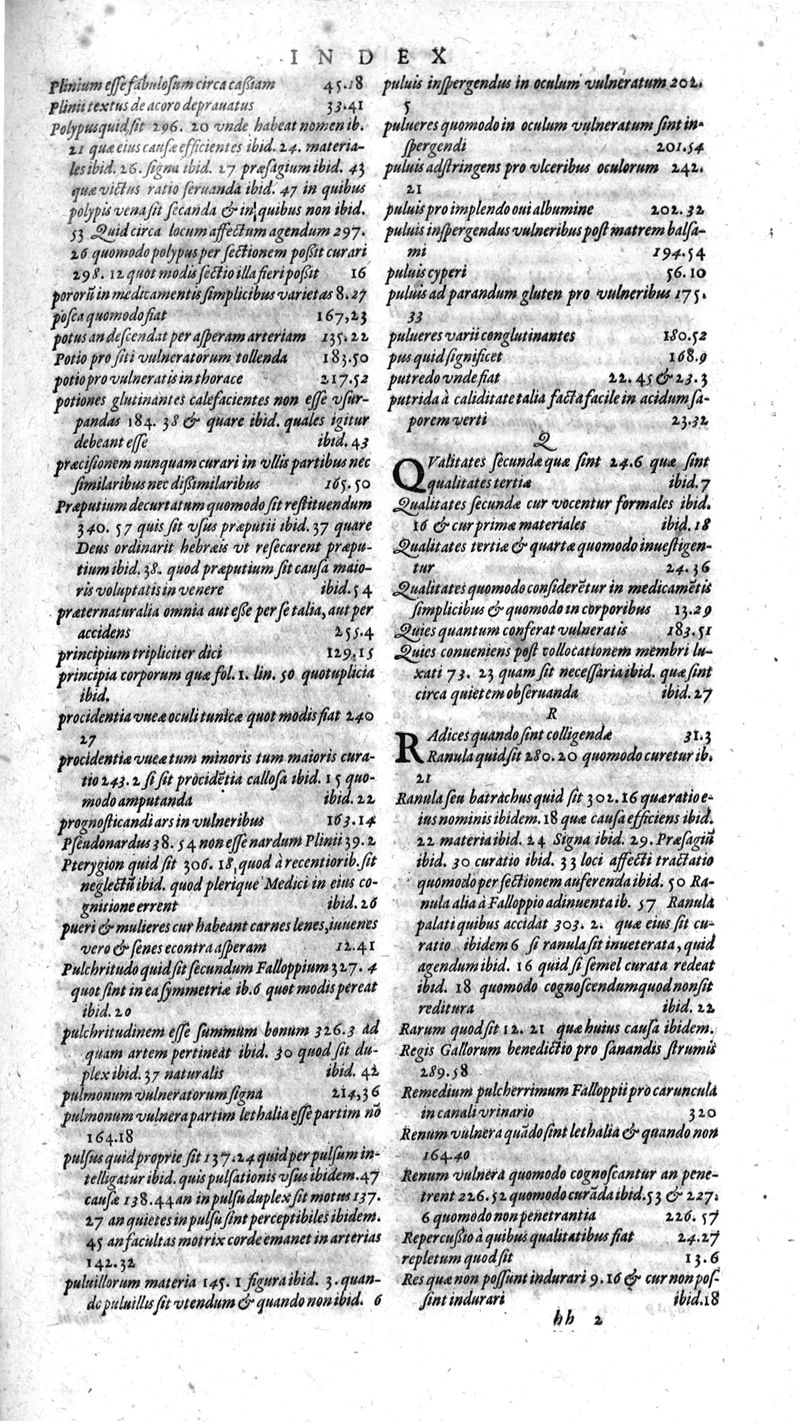 INDEX
Plinium esse fabulosum circa caßiam 45.18
Plinii textus de acoro deprauatus 33.41
Polypus quid sit 296. 20 vnde habeat nomen ib.
21 quæ eius causæ efficientes ibid. 24. materia-
les ibid. 26. signa ibid. 27 præsagium ibid. 43
quæ victus ratio seruanda ibid. 47 in quibus
polypis vena sit secanda & in quibus non ibid.
53 Quid circa locum affectum agendum 297.
26 quomodo polypus per sectionem poßit curari
298. 12 quot modis sectio illa fieri poßit 16
pororũ in medicamentis simplicibus varietas 8.27
posca quomodo fiat 167,23
potus an descendat per asperam arteriam 135.22
Potio pro siti vulneratorum tollenda 183.50
potio pro vulneratis in thorace 217.52
potiones glutinantes calefacientes non esse vsur-
pandas 184. 38 & quare ibid. quales igitur
debeant esse ibid. 43
præcisionem nunquam curari in vllis partibus nec
similaribus nec dißimilaribus 165.50
Præputium decurtatum quomodo sit restituendum
340. 57 quis sit vsus præputii ibid. 37 quare
Deus ordinarit hebræis vt resecarent præpu-
tium ibid. 38. quod præputium sit causa maio-
ris voluptatis in venere ibid. 54
præternaturalia omnia aut esse per se talia, aut per
accidens 255.4
principium tripliciter dici 129,15
principia corporum quæ fol. 1. lin. 50 quotuplicia
ibid.
procidentia vueæ oculi tunicæ quot modis fiat 240
27
procidentiæ vueæ tum minoris tum maioris cura-
tio 243. 2 si sit procidẽtia callosa ibid. 15 quo-
modo amputanda ibid. 22
prognosticandi ars in vulneribus 163.14
Pseudonardus 38. 54 non esse nardum Plinii 39.2
Pterygion quid sit 306. 18, quod à recentiorib. sit
neglectũ ibid. quod plerique Medici in eius co-
gnitione errent ibid. 26
pueri & mulieres cur habeant carnes lenes, iuuenes
vero & senes econtra asperam 12.41
Pulchritudo quid sit secundum Falloppium 327. 4
quot sint in ea symmetriæ ib. 6 quot modis pereat
ibid. 20
pulchritudinem esse summum bonum 326.3 ad
quam artem pertineat ibid. 30 quod sit du-
plex ibid. 37 naturalis ibid. 42
pulmonum vulneratorum signa 214,36
pulmonum vulnera partim lethalia esse partim nõ
164.18
pulsus quid proprie sit 137.24 quid per pulsum in-
telligatur ibid. quis pulsationis vsus ibidem. 47
causæ 138.44 an in pulsu duplex sit motus 137.
27 an quietes in pulsu sint perceptibiles ibidem.
45 an facultas motrix corde emanet in arterias
142.32
puluillorum materia 145. 1 figura ibid. 3. quan-
do puluillus sit vtendum & quando non ibid. 6
puluis inspergendus in oculum vulneratum 202.
5
pulueres quomodo in oculum vulneratum sint in-
spergendi 201.54
puluis adstringens pro vlceribus oculorum 242.
21
puluis pro implendo oui albumine 202. 32
puluis inspergendus vulneribus post matrem balsa-
mi 194.54
puluis cyperi 56.10
puluis ad parandum gluten pro vulneribus 175.
33
pulueres varii conglutinantes 180.52
pus quid significet 168.9
putredo vnde fiat 22. 45 & 23.3
putrida à caliditate talia facta facile in acidum sa-
porem verti 23.32
Q
QValitates secundæ quæ sint 24.6 quæ sint
qualitates tertiæ ibid. 7
Qualitates secundæ cur vocentur formales ibid.
16 & cur primæ materiales ibid. 18
Qualitates tertiæ & quartæ quomodo inuestigen-
tur 24.36
Qualitates quomodo considerẽtur in medicamẽtis
simplicibus & quomodo in corporibus 13.29
Quies quantum conferat vulneratis 183.51
Quies conueniens post collocationem membri lu-
xati 73. 23 quam sit necessaria ibid. quæ sint
circa quietem obseruanda ibid. 27
R
RAdices quando sint colligendæ 31.3
Ranula quid sit 280.20 quomodo curetur ib.
21
Ranula seu batrachus quid sit 302.16 quæ ratio e-
ius nominis ibidem. 18 quæ causa efficiens ibid.
22 materia ibid. 24 Signa ibid. 29. Præsagiũ
ibid. 30 curatio ibid. 33 loci affecti tractatio
quomodo per sectionem auferenda ibid. 50 Ra-
nula alia à Falloppio adinuenta ib. 57 Ranula
palati quibus accidat 303. 2. quæ eius sit cu-
ratio ibidem 6 si ranula sit inueterata, quid
agendum ibid. 16 quid si semel curata redeat
ibid. 18 quomodo cognoscendum quod non sit
reditura ibid. 22
Rarum quod sit 12. 21 quæ huius causa ibidem.
Regis Gallorum benedictio pro sanandis strumis
289.58
Remedium pulcherrimum Falloppii pro caruncula
in canali vrinario 320
Renum vulnera quãdo sint lethalia & quando non
164.40
Renum vulnera quomodo cognoscantur an pene-
trent 226.52 quomodo curãda ibid. 53 & 227.
6 quomodo non penetrantia 226. 57
Repercußio à quibus qualitatibus fiat 24.27
repletum quod sit 13.6
Res quæ non possunt indurari 9.16 & cur non pos-
sint indurari ibid. 18
hh 2